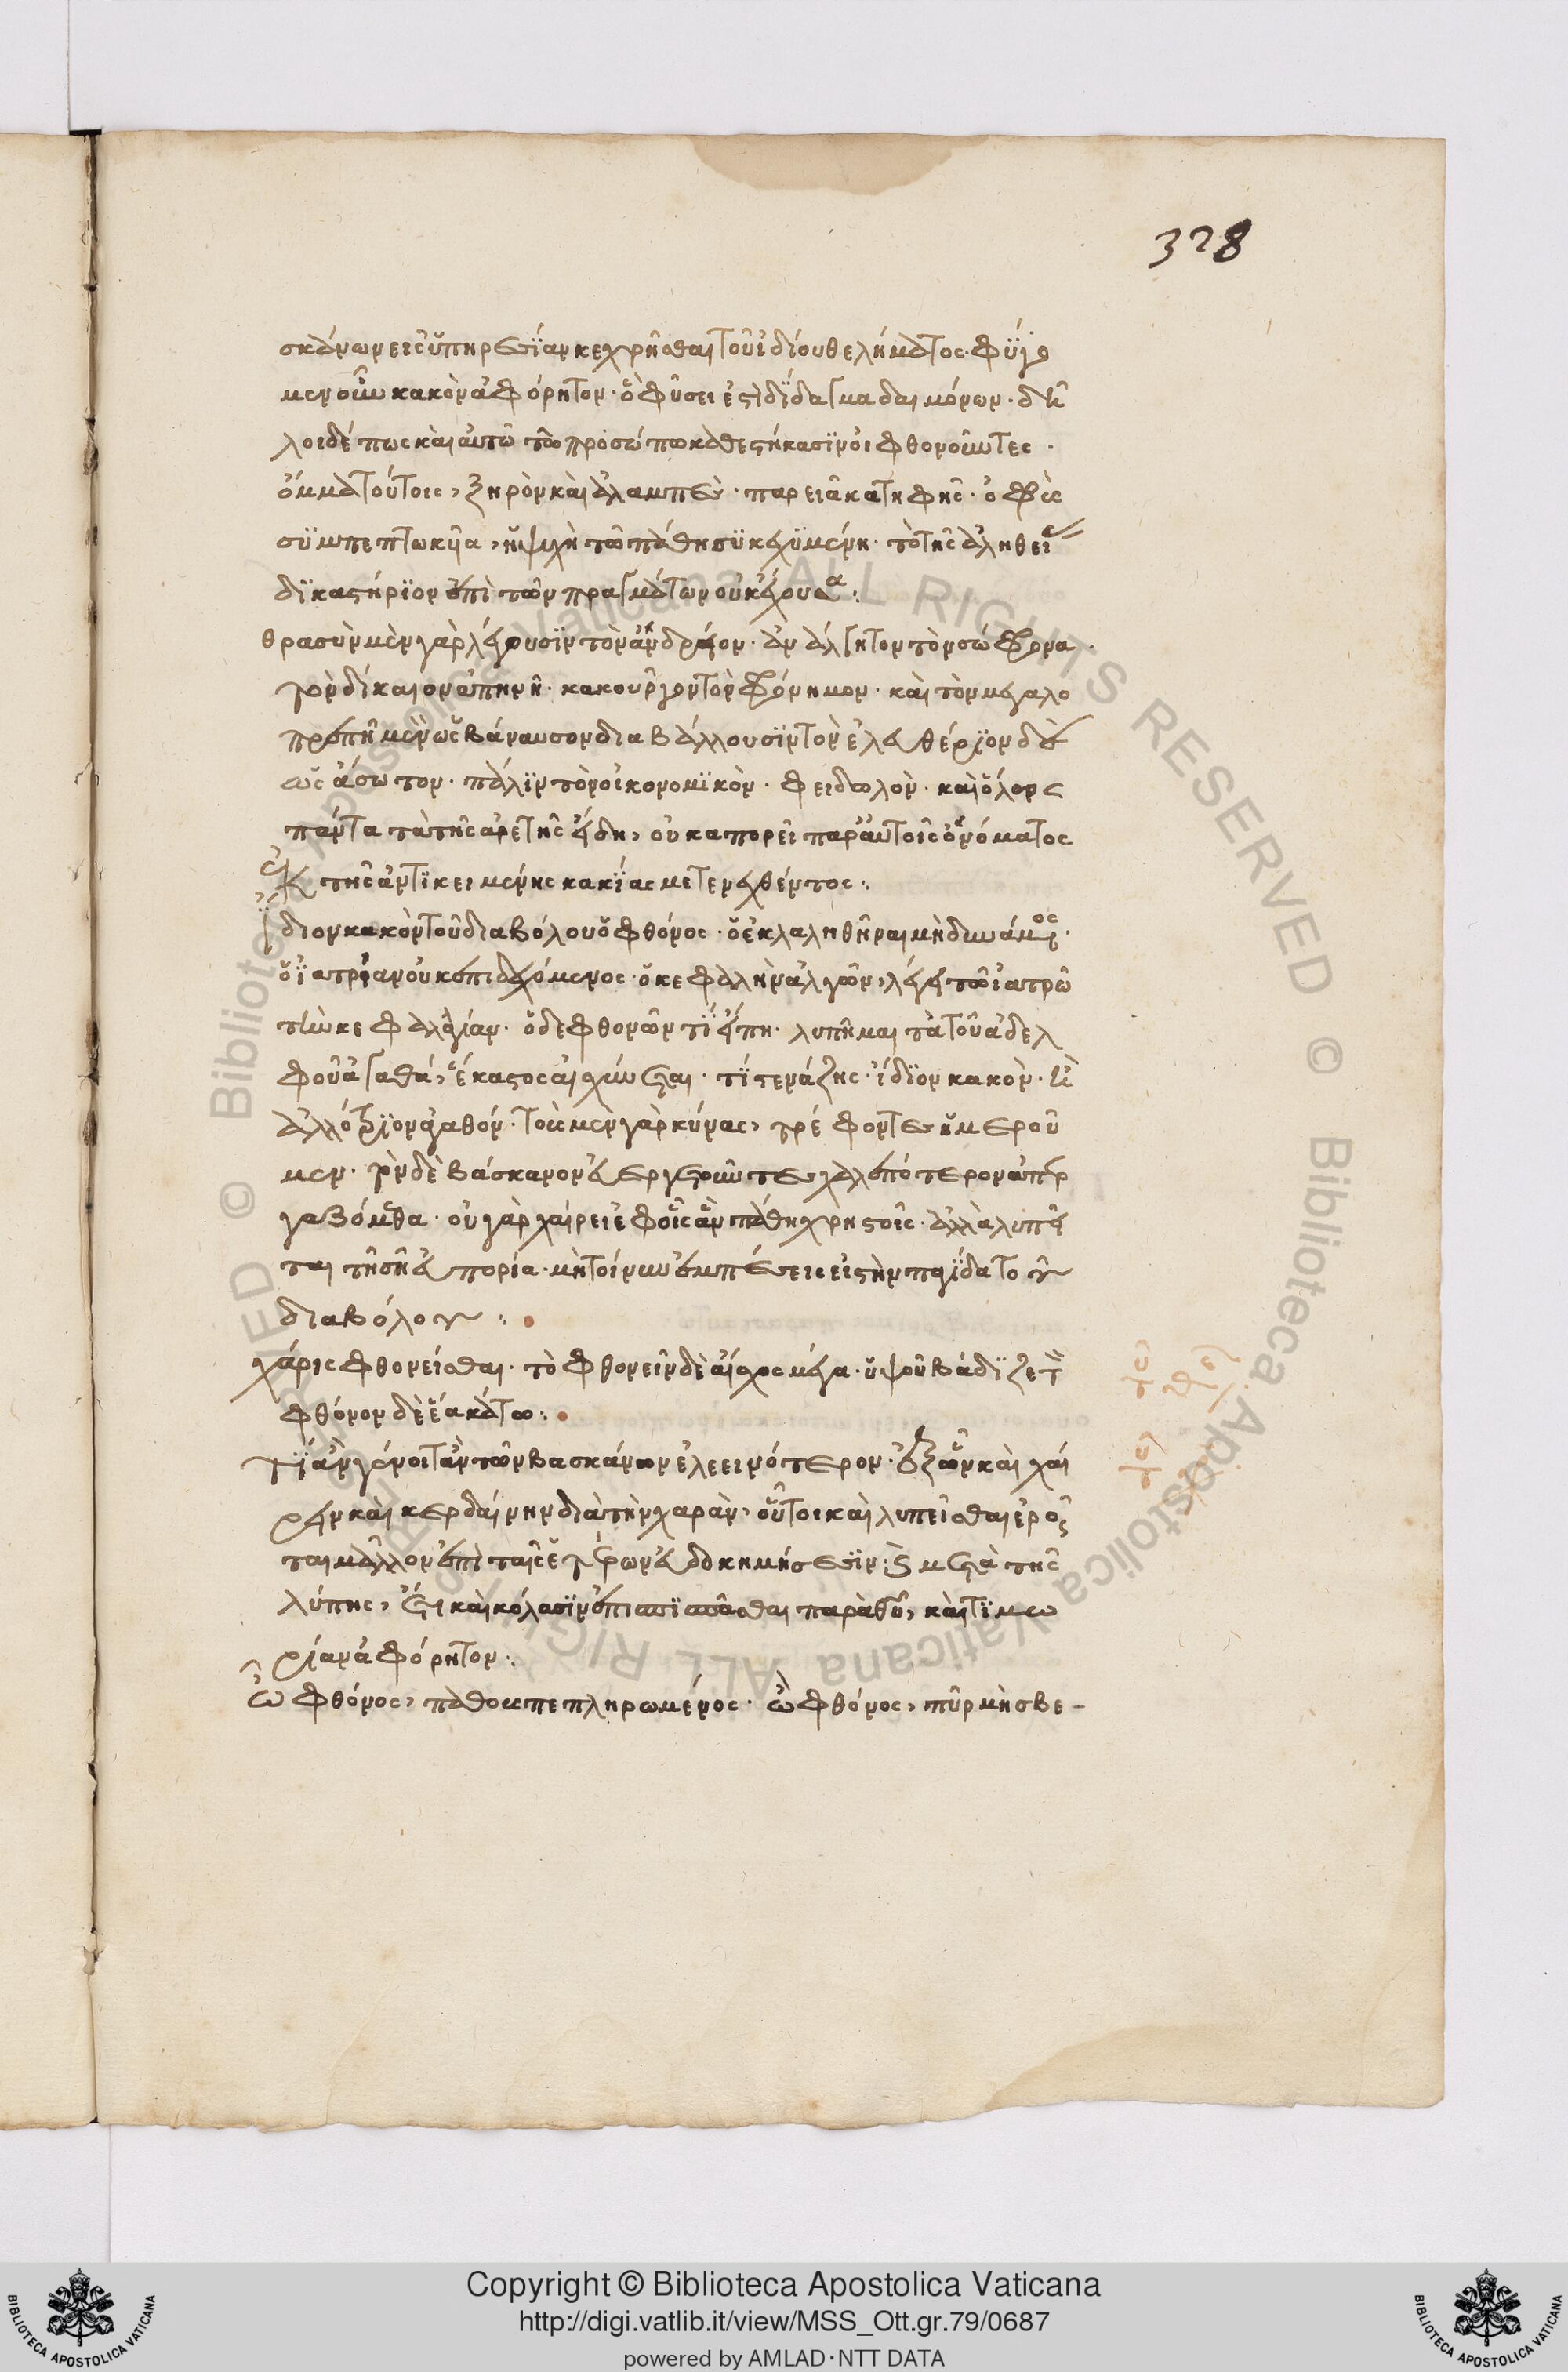 328
σκάνων εἰς ὑπηρεσίαν κεχρῆσθαι τοῦ ἰδίου θελήματος. φύγω
μεν οὖν κακὸν ἀφόρητον. ὃ φύσει ἐστὶ δίδαγμα δαιμόνων. δῆ
λοι δέ πως καὶ αὐτῶ τῶ προσώπω καθεστήκασιν οἱ φθονοῦντες.
ὄμμα τούτοις, ξηρὸν καὶ ἀλαμπὲς. παρειὰ κατηφὴς. ὀφρὺς
συμπεπτωκυῖα, ἡ ψυχὴ τῶ πάθη συγκεχυμένη. τὸ τῆς ἀληθείας
δικαστήριον ἐπὶ τῶν πραγμάτων οὐκ ἔχουσα:
θρασὺν μὲν γὰρ λέγουσιν τὸν ἀνδρεῖον. ἀνάλγητον τὸν σώφρονα.
τὸν δίκαιον ἀπηνῆ. κακοῦργον τὸν φρόνημον. καὶ τὸν μεγαλο
πρεπῆ μὲν ὡς βάναυσον διαβάλλουσιν τὸν ἐλευθέριον δὲ
ὡς ἄσωτον. πάλιν τὸν οἰκονομικὸν. φειδωλὸν. καὶ ὅλως
πάντα τὰ τῆς ἀρετῆς εἴδη, οὐκ ἀπορεῖ παρ' αὐτοῖς ὀνόματος
ἐκ τῆς ἀντικειμένης κακίας μετενεχθέντος:
ἴδιον κακὸν τοῦ διαβόλου ὁ φθόνος. ὁ ἐκλαληθῆναι μὴ δυνάμενος.
ὁ ἰατρίαν οὐκ ἐπιδεχόμενος. ὁ κεφαλὴν ἀλγῶν, λέγει τῶ ἰατρῶ
τὴν κεφαλαλγίαν. ὁ δὲ φθονῶν τί εἴπη. λυπῆ με τὰ τοῦ ἀδελ
φοῦ ἀγαθά, ἕκαστος αἰσχύνεται. τί στενάζης. ἴδιον κακὸν. ἢ
ἀλλότριον ἀγαθόν. τοὺς μὲν γὰρ κύνας, τρέφοντες ἡμεροῦ
μεν. τὸν δὲ βάσκανον εὐεργετοῦντες χαλεπότερον ἀπερ
γαζόμεθα. οὐ γὰρ χαίρει ἐφ' οἷς ἂν πάθη χρηστοῖς. ἀλλὰ λυπεῖ
ται τῆ σῆ εὐπορία. μὴ τοίνυν ἐμπέσεις εἰς τὴν παγίδα τοῦ
διαβόλου:
χάρις φθονεῖσθαι. τὸ φθονεῖν δὲ αἶσχος μέγα. ὑψοῦ βάδιζε τὸν
φθόνον δὲ ἔα κάτω:
τί ἂν γένοιτ' ἂν τῶν βασκάνων ἐλεεινότερον. ἐξ ὧν καὶ χαί
ρειν καὶ κερδαίνην διὰ τὴν χαρὰν, οὗτοι καὶ λυπεῖσθαι
ται μᾶλλον ἐπὶ ταῖς ἑτέρων εὐδοκημήσεσιν. καὶ μετὰ τῆς
λύπης, ἔτι καὶ κόλασιν ἐπισπᾶσθαι παρὰ θεοῦ, καὶ τιμω
ρίαν ἀφόρητον:
ὦ φθόνος, πάθους πεπληρωμένος. ὢ φθόνος, πῦρ μὴ σβε-
Copyright © Biblioteca Apostolica Vaticana
http://digi.vatlib.it/view/MSS_Ott.gr.79/0687
powered by AMLAD·NTT DATA